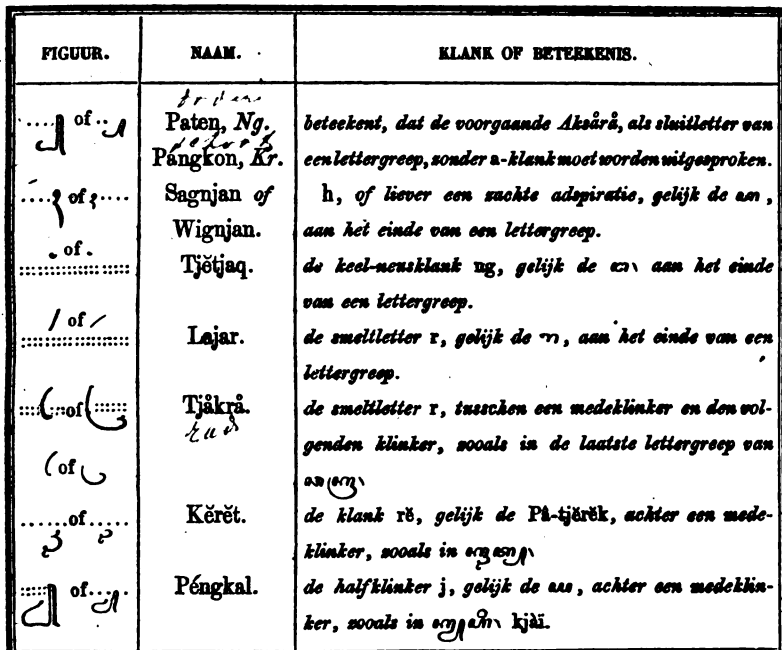 FIGUUR. NAAM. KLANK OF BETEEKENIS.
of Paten, Ng. beteekent, dat de voorgaande Aksårå, als sluitletter van
Pangkon, Kr. een lettergreep, zonder a-klank moet worden uitgesproken.
of Sagnjan of h, of liever een zachte adspiratie, gelijk de ꦲ,
Wignjan. aan het einde van een lettergreep.
of Tjĕtjaq. de keel-neusklank ng, gelijk de ꦔ꧀ aan het einde
van een lettergreep.
of Lajar. de smeltletter r, gelijk de ꦫ, aan het einde van een
lettergreep.
of Tjåkrå. de smeltletter r, tusschen een medeklinker en den vol-
genden klinker, zooals in de laatste lettergreep van
of
of Kĕrĕt. de klank rĕ, gelijk de På-tjĕrĕk, achter een mede-
klinker, zooals in
of Péngkal. de halfklinker j, gelijk de ꦪ, achter een medeklin-
ker, zooals in kjàï.